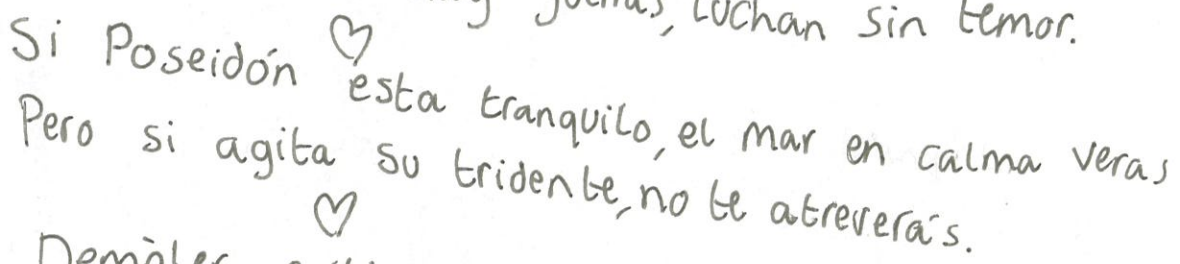 luchan sin temor.
Si Poseidón esta tranquilo, el mar en calma veras
Pero si agita su tridente, no te atreverás.